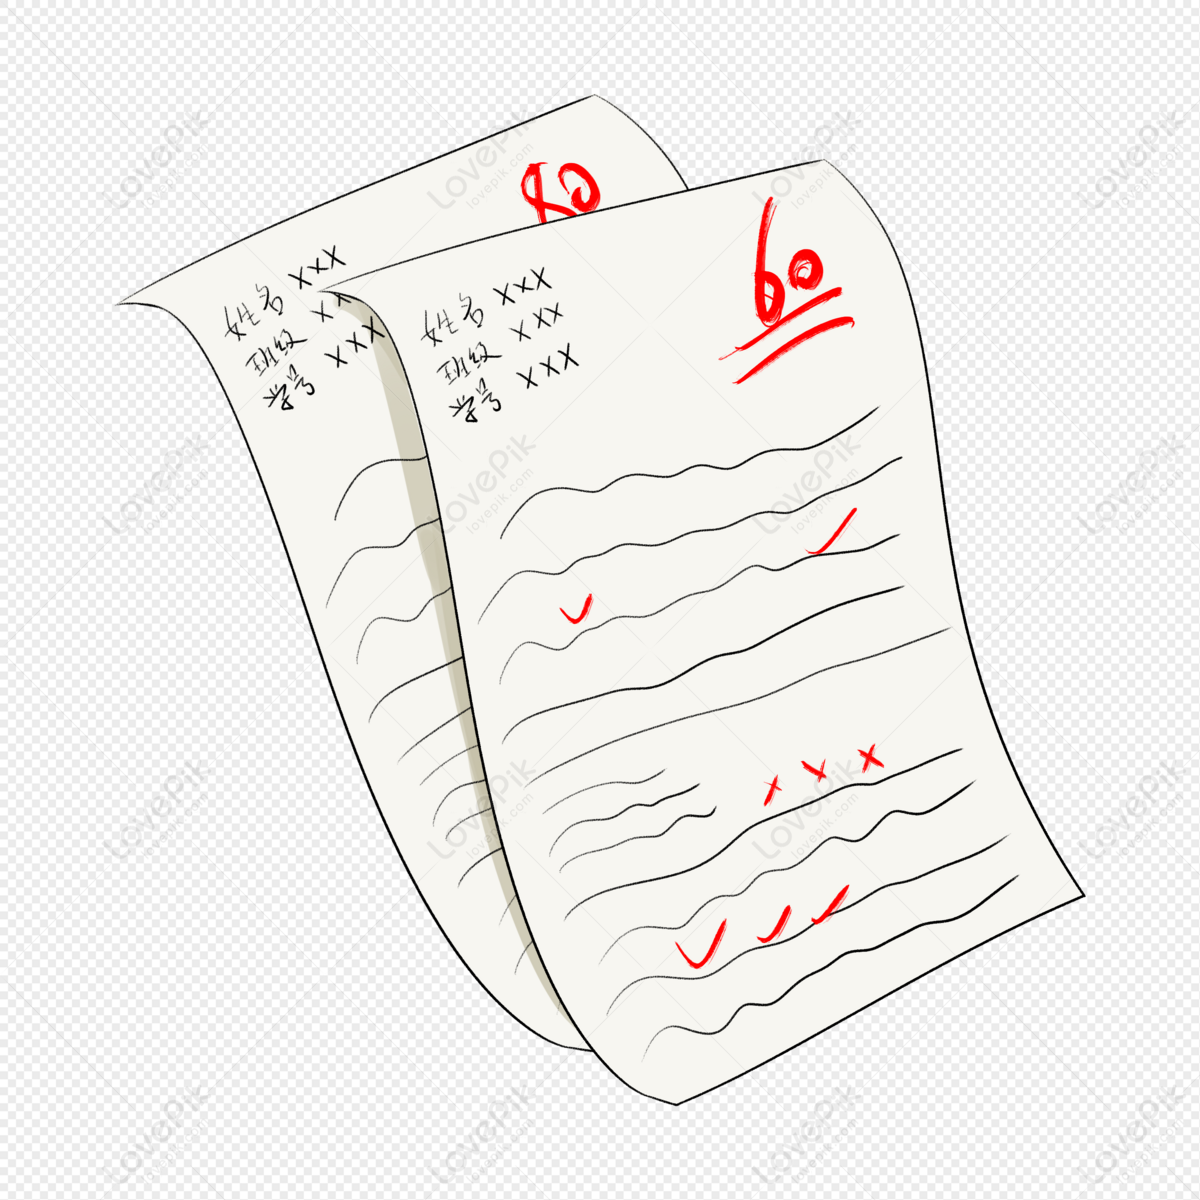 80
姓名 XXX
班级 XX
学号 XXX
60
姓名 XXX
班级 XXX
学号 XXX
LovePik
lovepik.com